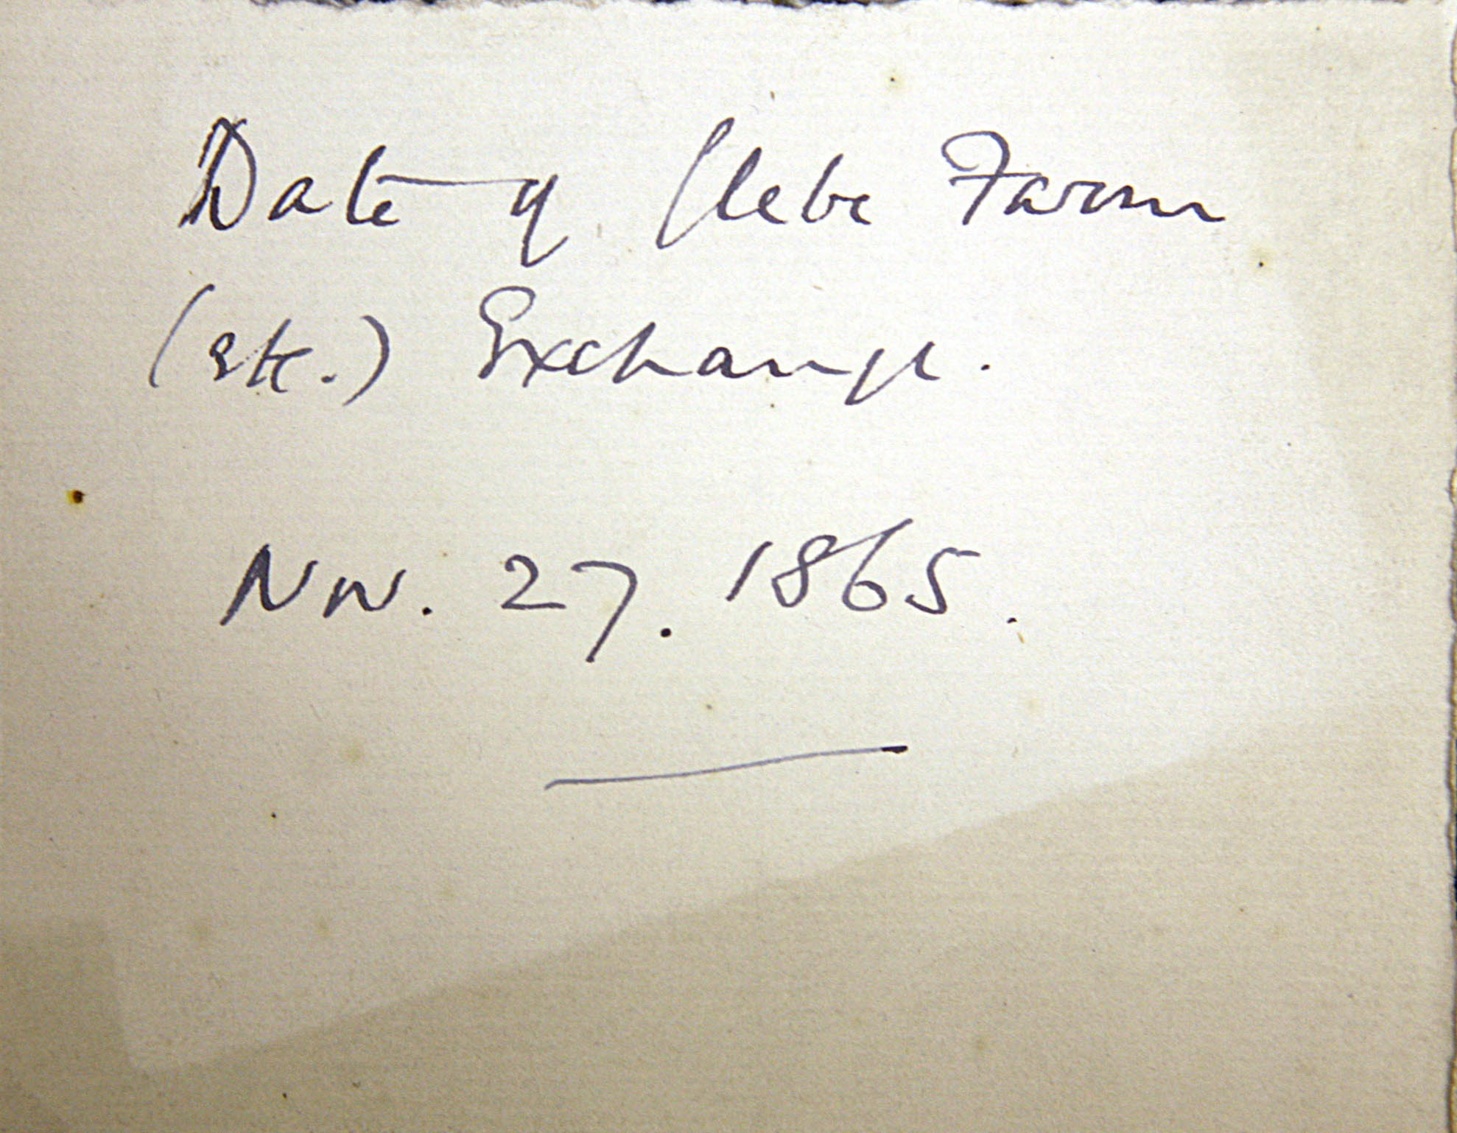 Date of Glebe Farm
(etc.) Exchange.
Nov. 27. 1865.